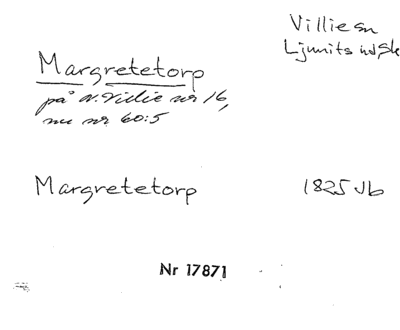 Villie sn
Ljunits hd Sk
Margretetorp
på N. Villie nr 16,
nu nr 60:5
Margretetorp 1825 Jb
Nr 17871